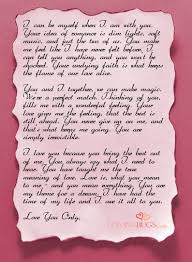 I can be myself when I am with you.
Your idea of romance is dim lights, soft
music, and just the two of us. You make
me feel like I have never felt before. I
can tell you anything, and you won't be
shocked. Your undying faith is what keeps
the flame of our love alive.
You and I together, we can make magic.
We're a perfect match. Thinking of you,
fills me with a wonderful feeling. Your
love gives me the feeling, that the best is
still ahead. You never give up on me, and
that's what keeps me going. You are
simply irresistible.
I love you because you bring the best out
of me. You always say what I need to
hear. You have taught me the true
meaning of love. Love is, what you mean
to me - and you mean everything. You are
my theme for a dream. I have had the time
of my life and, I owe it all to you.
Love You Only.
HUGS